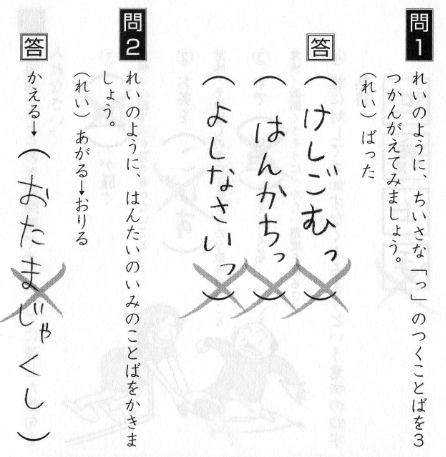 問1
れいのように、ちいさな「っ」のつくことばを3
つかんがえてみましょう。
（れい）ばった
答
（けしごむっ）
（はんかちっ）
（よしなさいっ）
問2
れいのように、はんたいのいみのことばをかきま
しょう。
（れい）あがる→おりる
答
かえる→（おたまじゃくし）